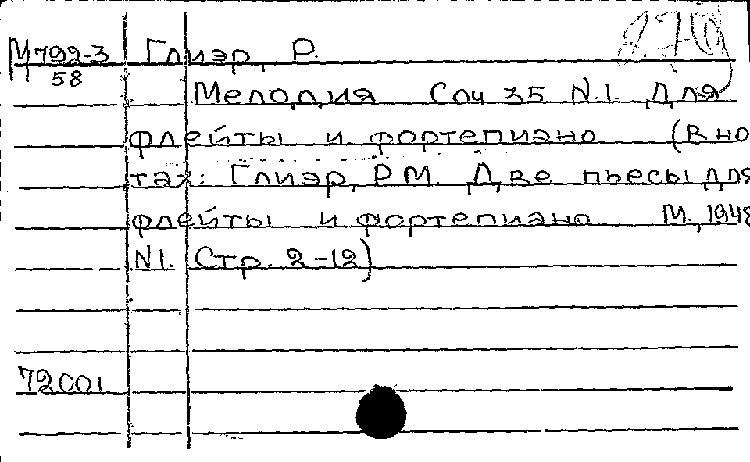 М792-3 Глиэр, Р.
58
Мелодия Соч 35 N.1 Для
флейты и фортепиано (В но
тах: Глиэр, Р.М. Две пьесы для
флейты и фортепиано М., 1948
N1. Стр. 2-12)
72001